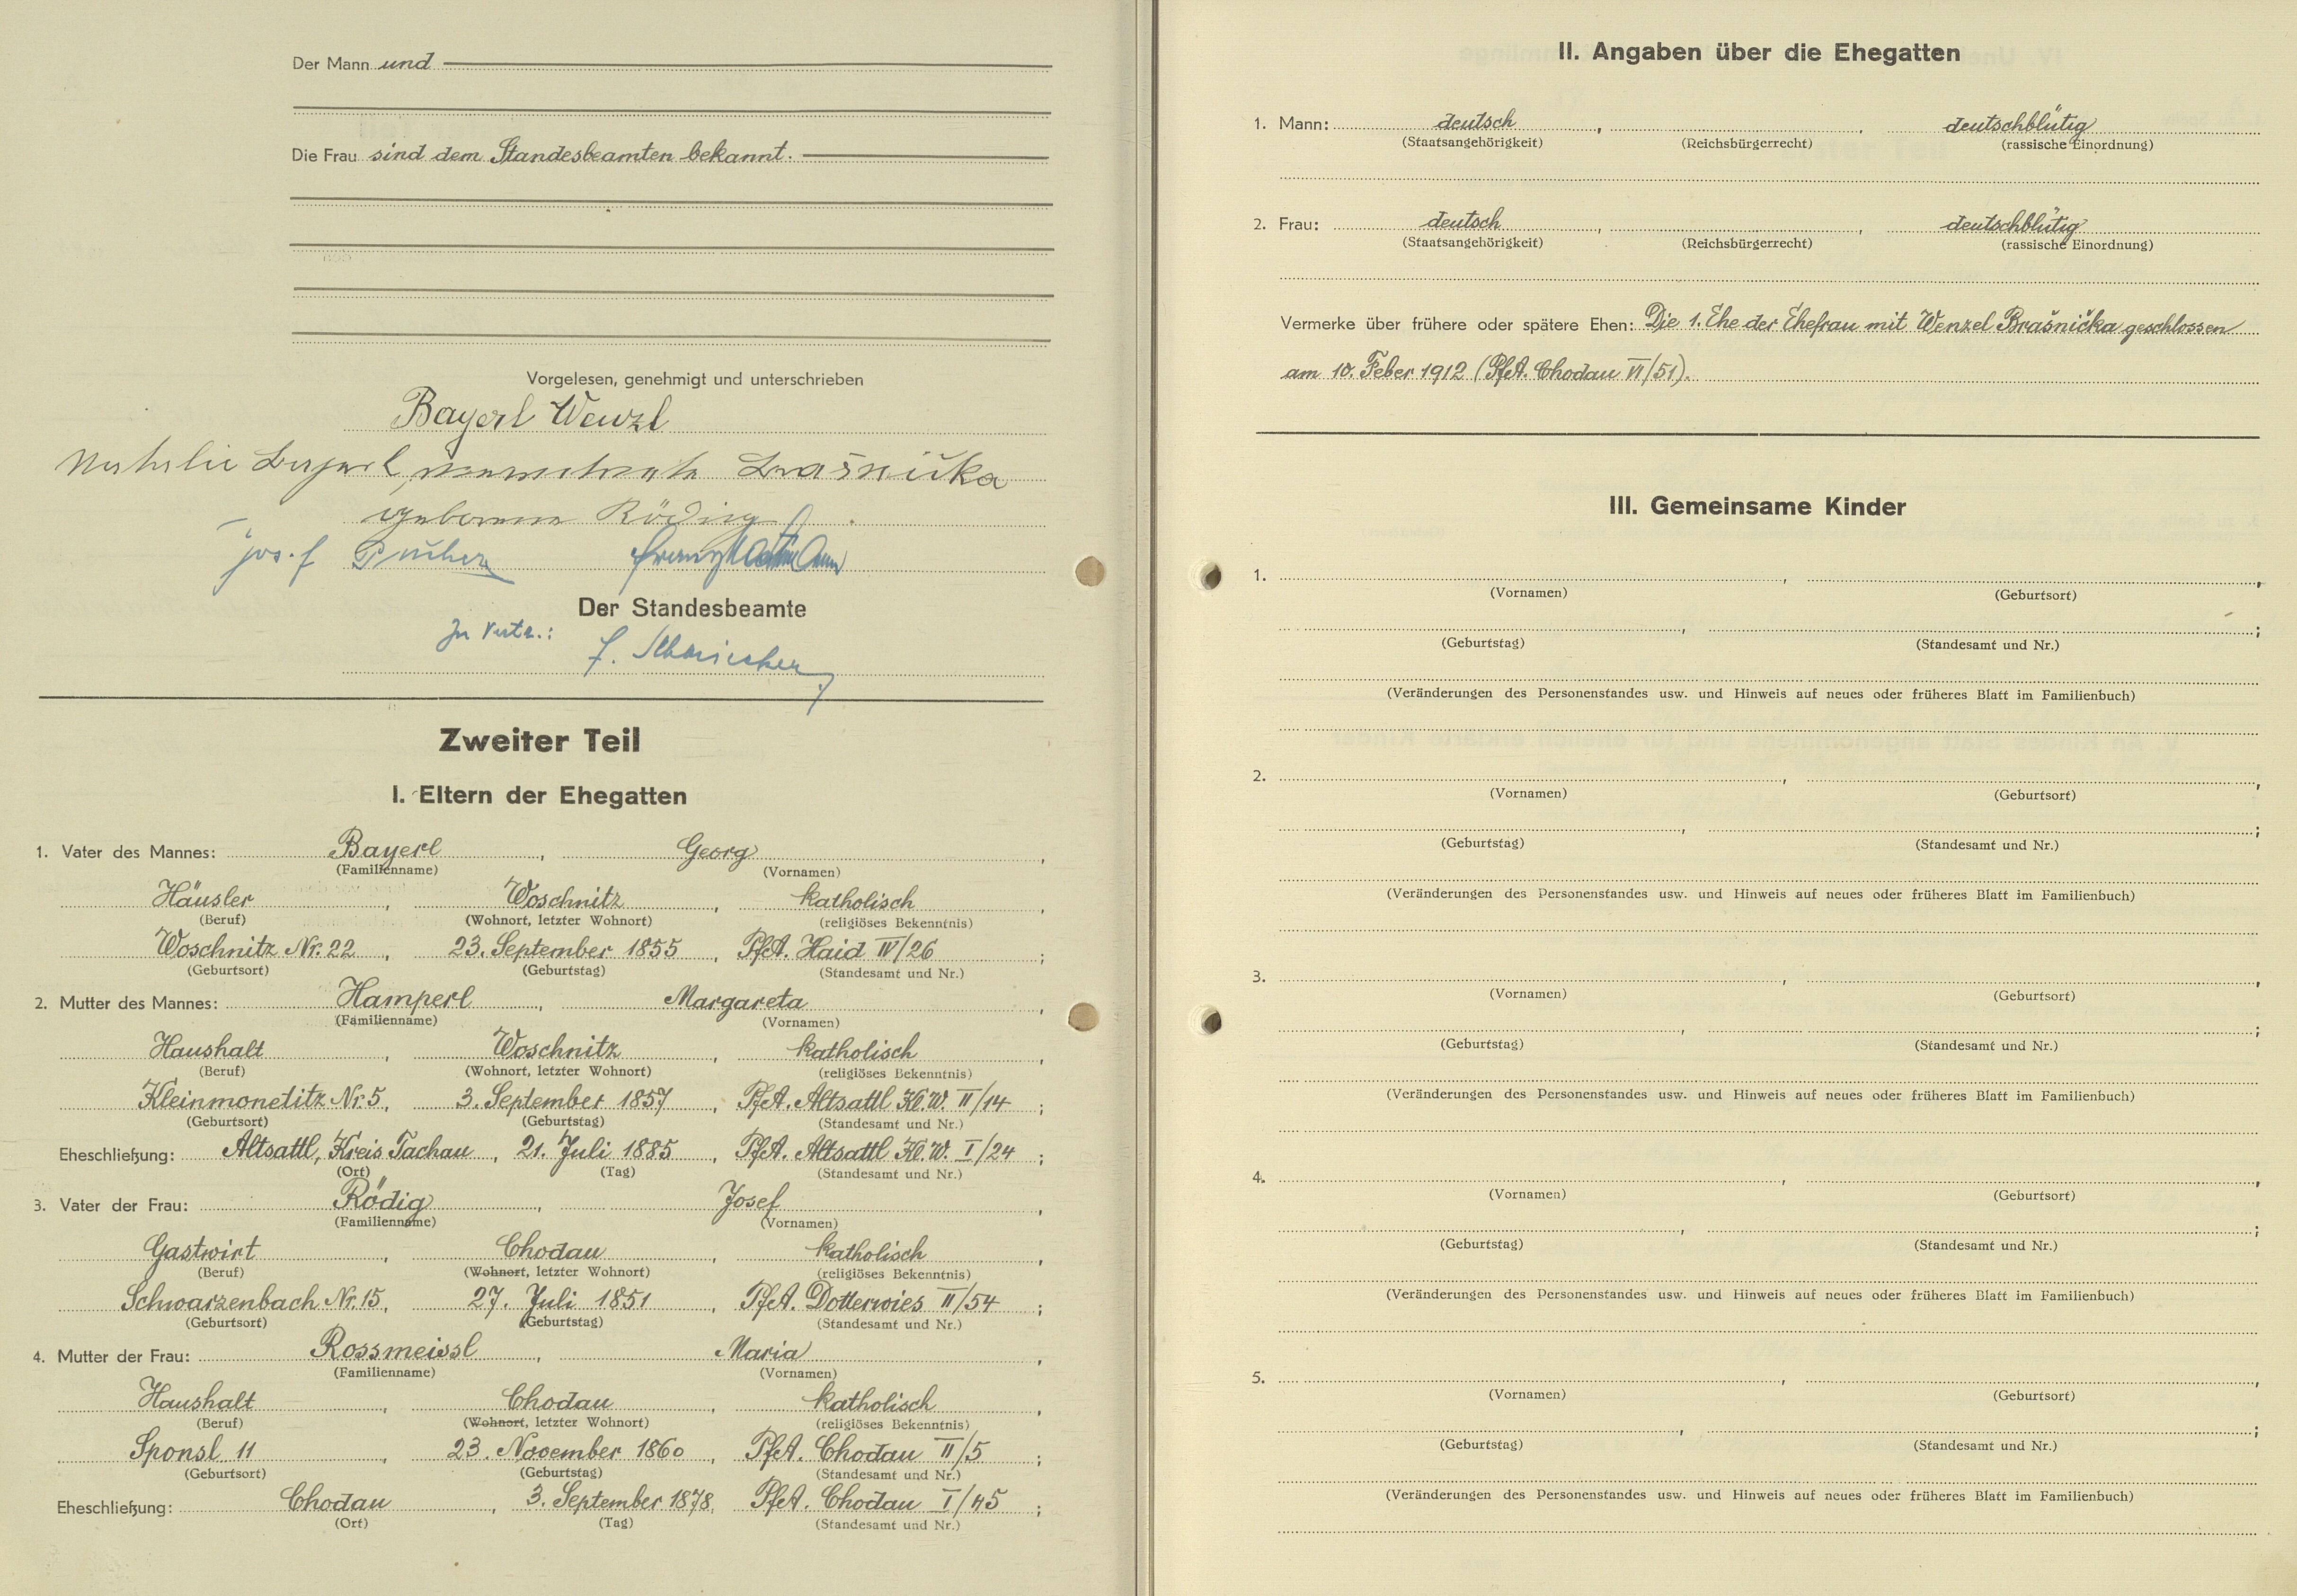 Der Mann und
Die Frau sind dem Standesbeamten bekannt.
Vorgelesen, genehmigt und unterschrieben
Bayerl Wenzl
Natalie Bayerl, Brašnička
geborene Röding
Josef
Der Standesbeamte
In Vertr.:
Zweiter Teil
I. Eltern der Ehegatten
1. Vater des Mannes: Bayerl, Georg,
(Familienname) (Vornamen)
Häusler, Woschnitz, katholisch,
(Beruf) (Wohnort, letzter Wohnort) (religiöses Bekenntnis)
Woschnitz Nr. 22, 23. September 1855, PfA. Haid IV/26;
(Geburtsort) (Geburtstag) (Standesamt und Nr.)
2. Mutter des Mannes: Hamperl, Margareta,
(Familienname) (Vornamen)
Haushalt, Woschnitz, katholisch,
(Beruf) (Wohnort, letzter Wohnort) (religiöses Bekenntnis)
Kleinmonetitz Nr. 5, 3. September 1857, PfA. Altsattl Kl.W. II/14;
(Geburtsort) (Geburtstag) (Standesamt und Nr.)
Eheschließung: Altsattl, Kreis Tachau, 21. Juli 1885, PfA. Altsattl Kl.W. I/24;
(Ort) (Tag) (Standesamt und Nr.)
3. Vater der Frau: Rödig, Josef,
(Familienname) (Vornamen)
Gastwirt, Chodau, katholisch,
(Beruf) (Wohnort, letzter Wohnort) (religiöses Bekenntnis)
Schwarzenbach Nr. 15, 27. Juli 1851, PfA. Dotterwies II/54;
(Geburtsort) (Geburtstag) (Standesamt und Nr.)
4. Mutter der Frau: Rossmeissl, Maria,
(Familienname) (Vornamen)
Haushalt, Chodau, katholisch,
(Beruf) (Wohnort, letzter Wohnort) (religiöses Bekenntnis)
Sponsl 11, 23. November 1860, PfA. Chodau II/5;
(Geburtsort) (Geburtstag) (Standesamt und Nr.)
Eheschließung: Chodau, 3. September 1878, PfA. Chodau I/45;
(Ort) (Tag) (Standesamt und Nr.)
II. Angaben über die Ehegatten
1. Mann: deutsch, , deutschblütig
(Staatsangehörigkeit) (Reichsbürgerrecht) (rassische Einordnung)
2. Frau: deutsch, , deutschblütig
(Staatsangehörigkeit) (Reichsbürgerrecht) (rassische Einordnung)
Vermerke über frühere oder spätere Ehen: Die 1. Ehe der Ehefrau mit Wenzel Brašnička geschlossen
am 10. Feber 1912 (PfA. Chodau VI/51).
III. Gemeinsame Kinder
1. , ,
(Vornamen) (Geburtsort)
, ;
(Geburtstag) (Standesamt und Nr.)
(Veränderungen des Personenstandes usw. und Hinweis auf neues oder früheres Blatt im Familienbuch)
2. , ,
(Vornamen) (Geburtsort)
, ;
(Geburtstag) (Standesamt und Nr.)
(Veränderungen des Personenstandes usw. und Hinweis auf neues oder früheres Blatt im Familienbuch)
3. , ,
(Vornamen) (Geburtsort)
, ;
(Geburtstag) (Standesamt und Nr.)
(Veränderungen des Personenstandes usw. und Hinweis auf neues oder früheres Blatt im Familienbuch)
4. , ,
(Vornamen) (Geburtsort)
, ;
(Geburtstag) (Standesamt und Nr.)
(Veränderungen des Personenstandes usw. und Hinweis auf neues oder früheres Blatt im Familienbuch)
5. , ,
(Vornamen) (Geburtsort)
, ;
(Geburtstag) (Standesamt und Nr.)
(Veränderungen des Personenstandes usw. und Hinweis auf neues oder früheres Blatt im Familienbuch)